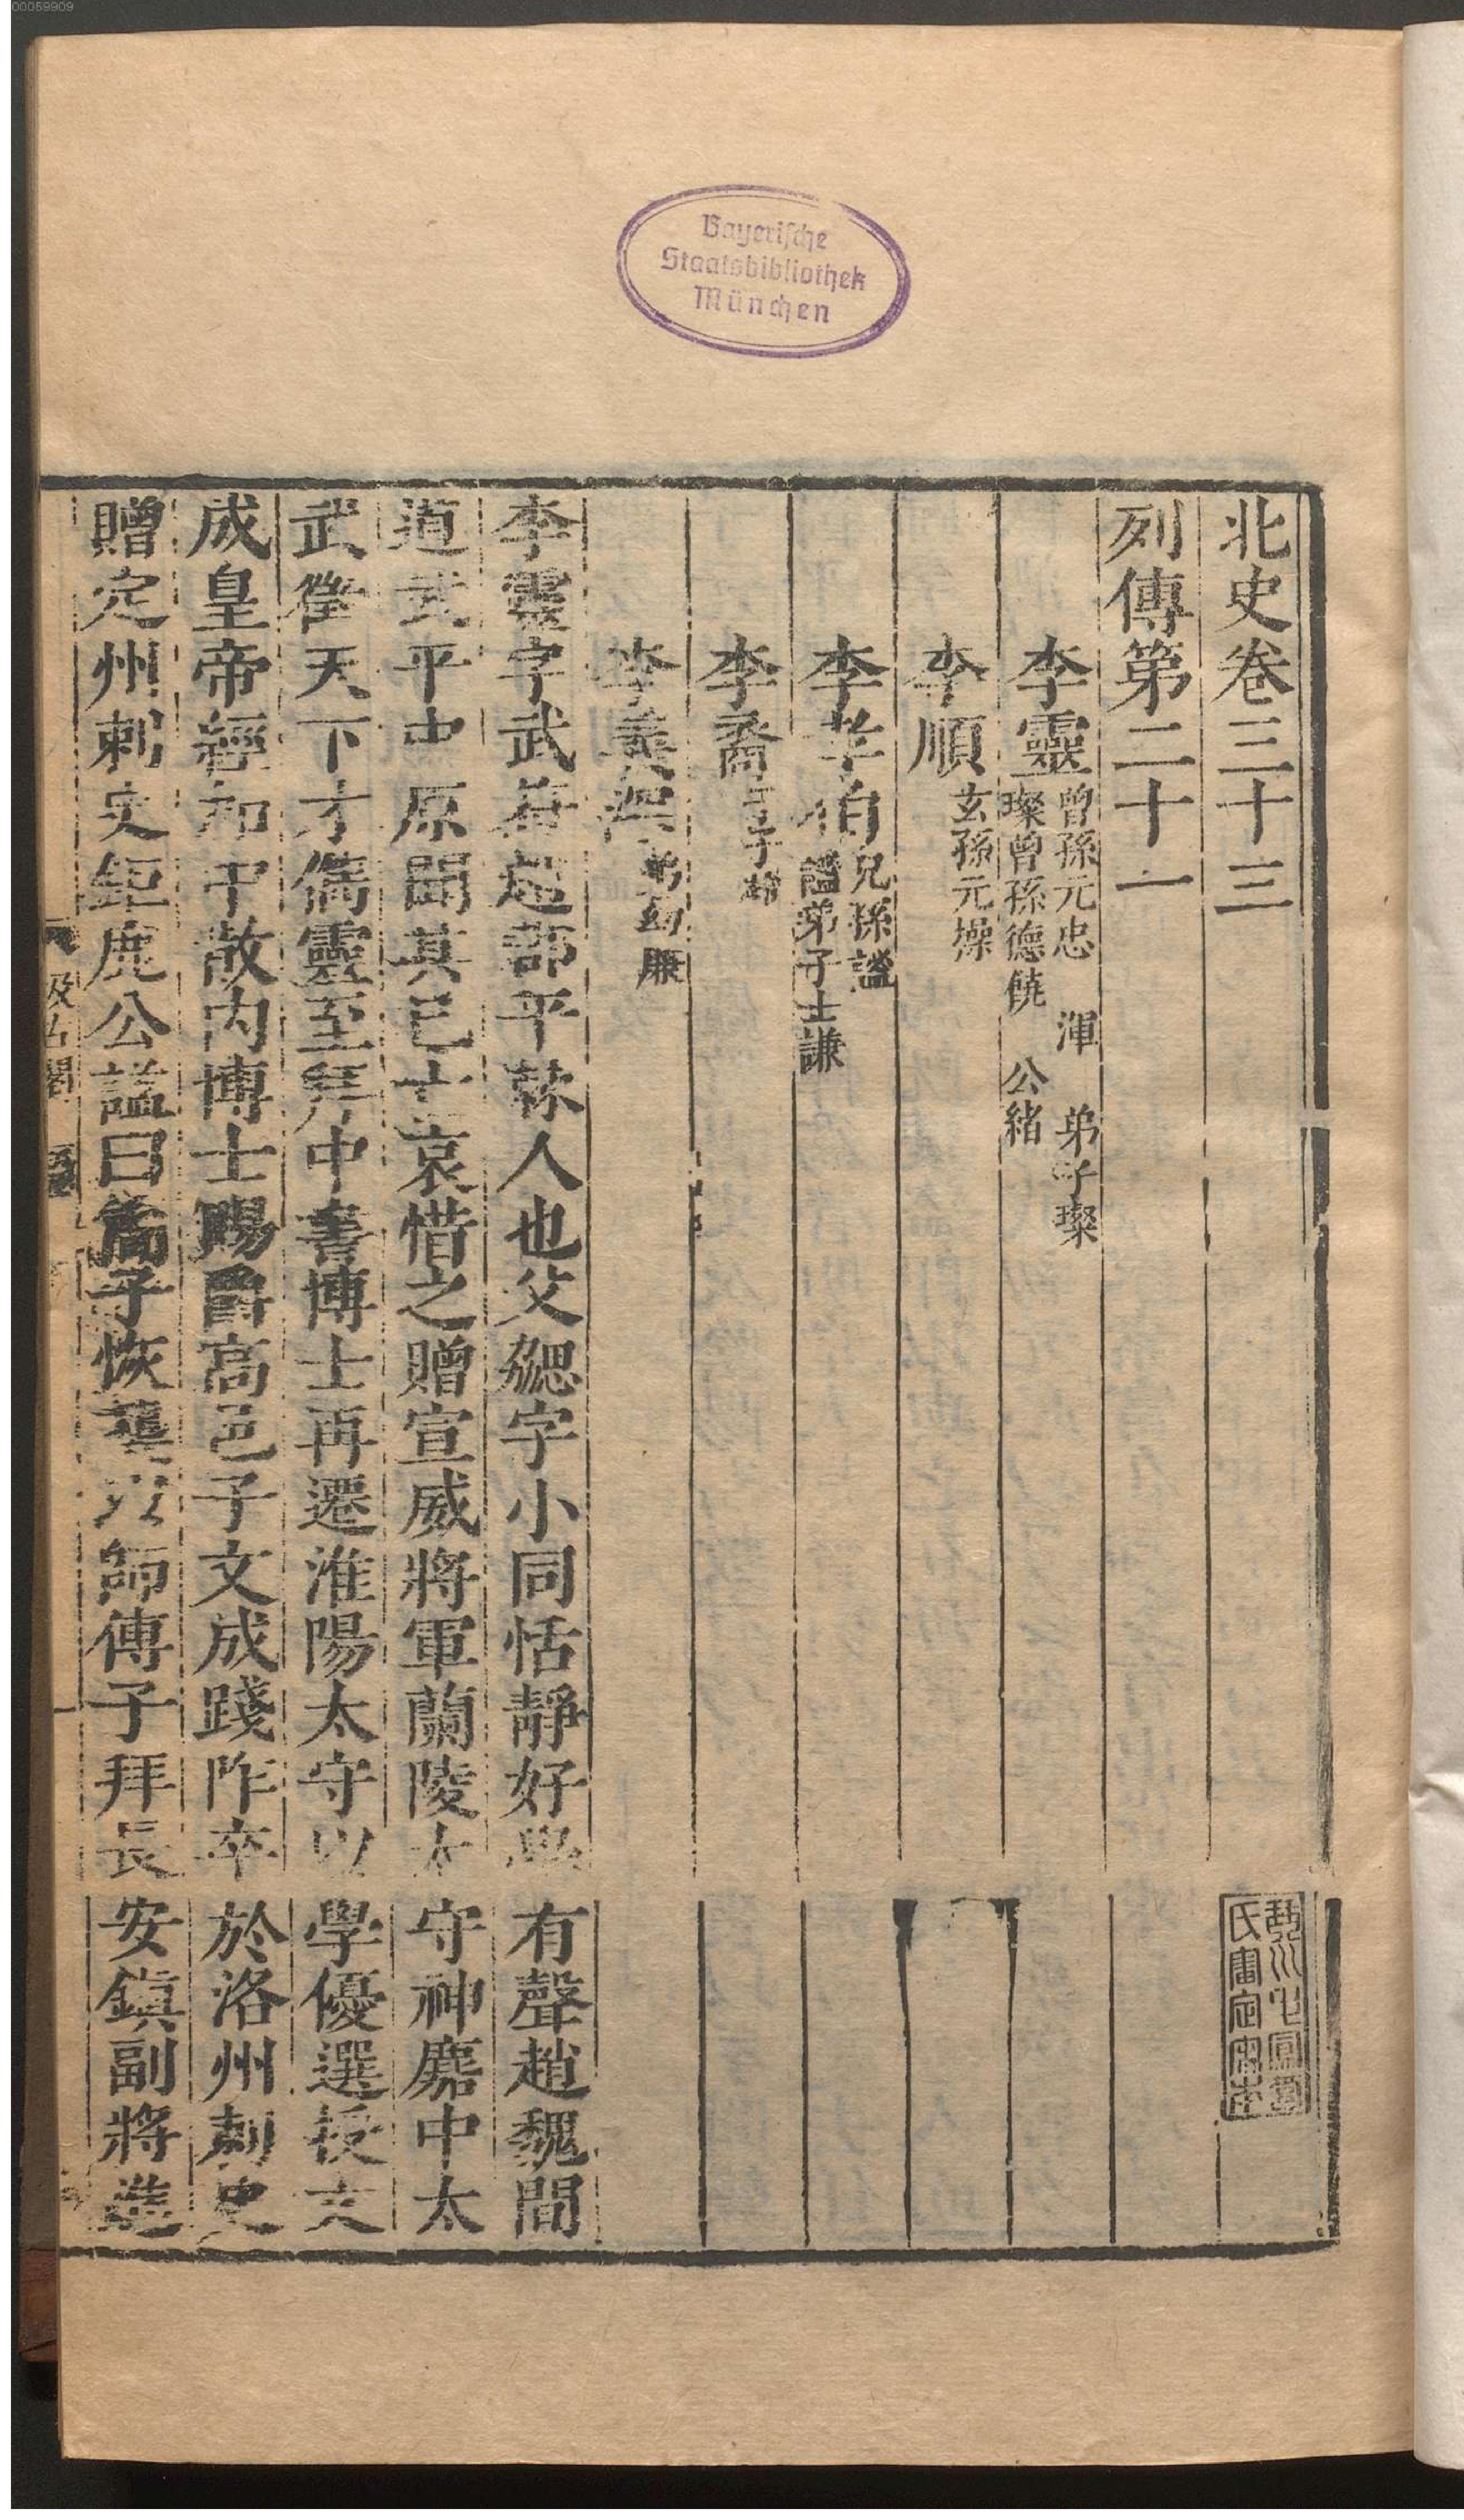 00059909
Bayerische
Staatsbibliothek
München
北史卷三十三
列傳第二十一
李靈 曾孫元忠 渾 弟子璨
璨曾孫德饒 公緒
李順 玄孫元操
李孝伯 兄孫謐
謐弟子士謙
李裔 子子雄
李義深 弟幼廉
李靈字武符趙郡平棘人也父勰字小同恬靜好學有聲趙魏間
道武平中原聞其已亡哀惜之贈宣威將軍蘭陵太守神䴥中太
武徵天下才儁靈至拜中書博士再遷淮陽太守以學優選授文
成皇帝經加中散內博士賜爵高邑子文成踐阼卒於洛州刺史
贈定州刺史鉅鹿公謚曰簡子恢襲以師傅子拜長安鎮副將進
汲古閣
氏審定宋本